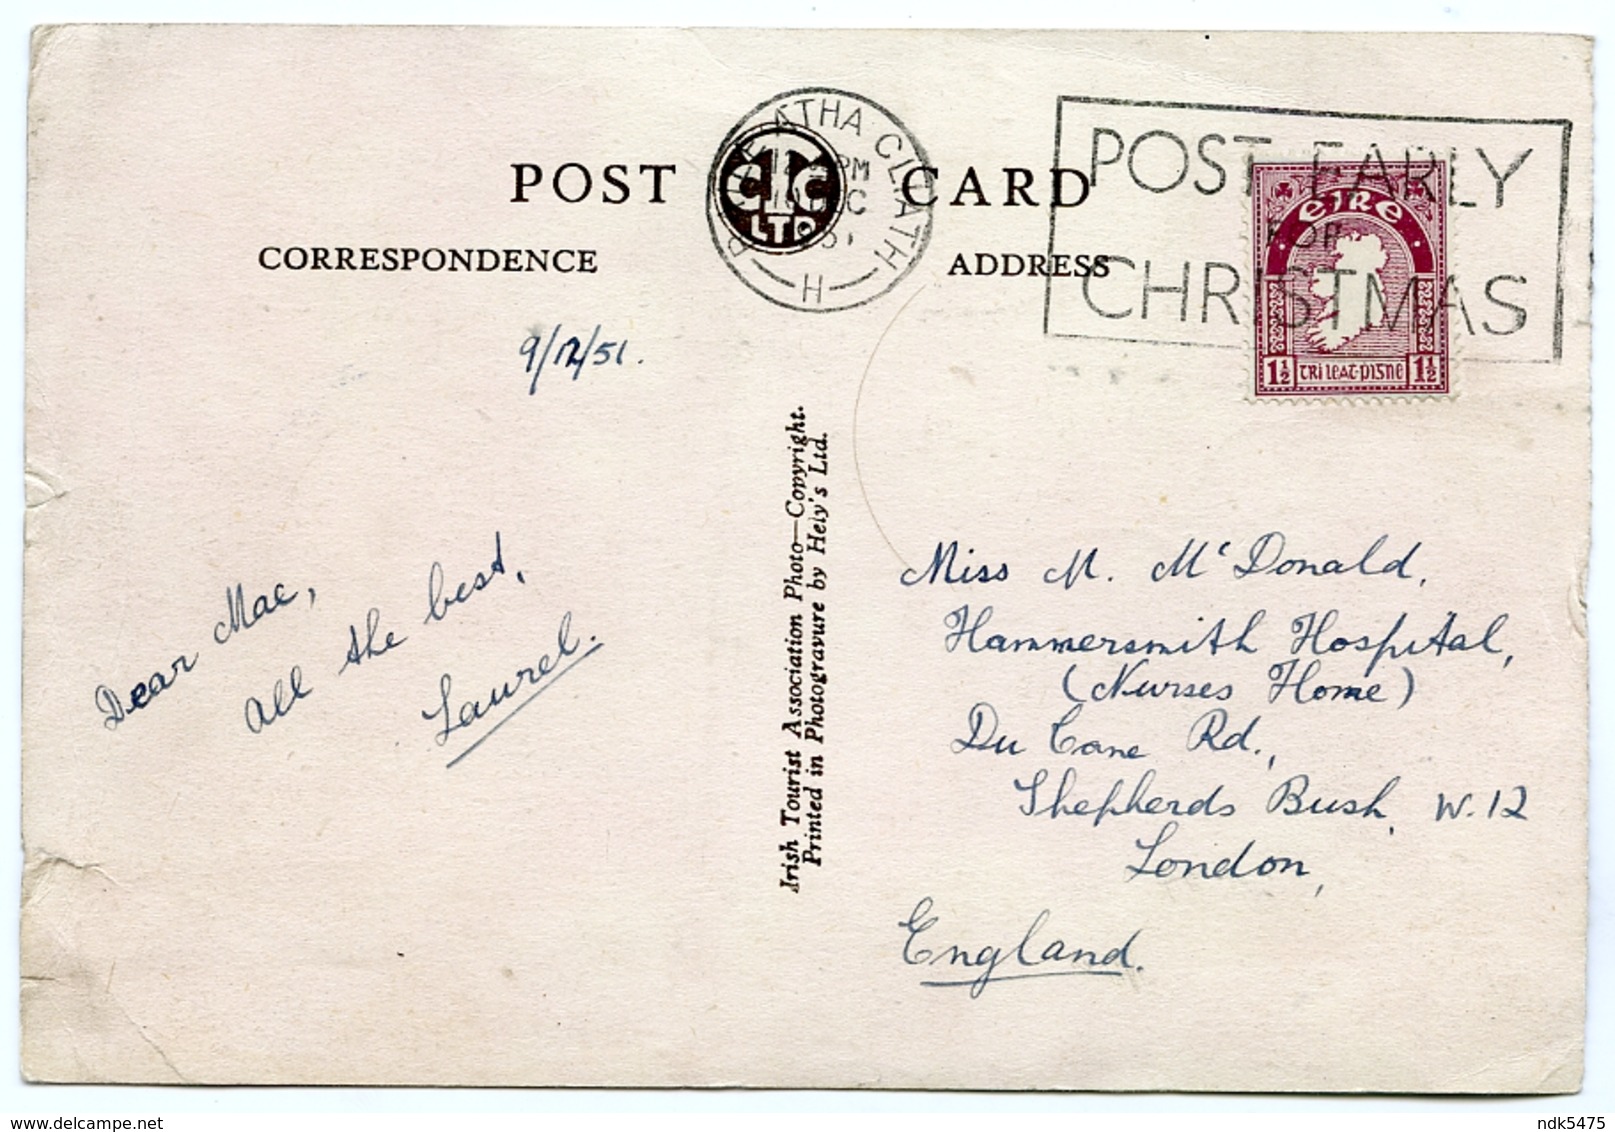 POST CARD
CORRESPONDENCE
ADDRESS
ÁTHA CLIATH
PM
H
CTC
LTD
POST EARLY
FOR
CHRISTMAS
éire
1½ trí leat-pisne 1½
9/12/51.
Dear Mac,
all the best,
Laurel.
Irish Tourist Association Photo—Copyright.
Printed in Photogravure by Hely's Ltd.
Miss M. McDonald,
Hammersmith Hospital,
(Nurses Home)
Du Cane Rd.,
Shepherds Bush, W.12
London,
England.
delcampe.net
ndk5475